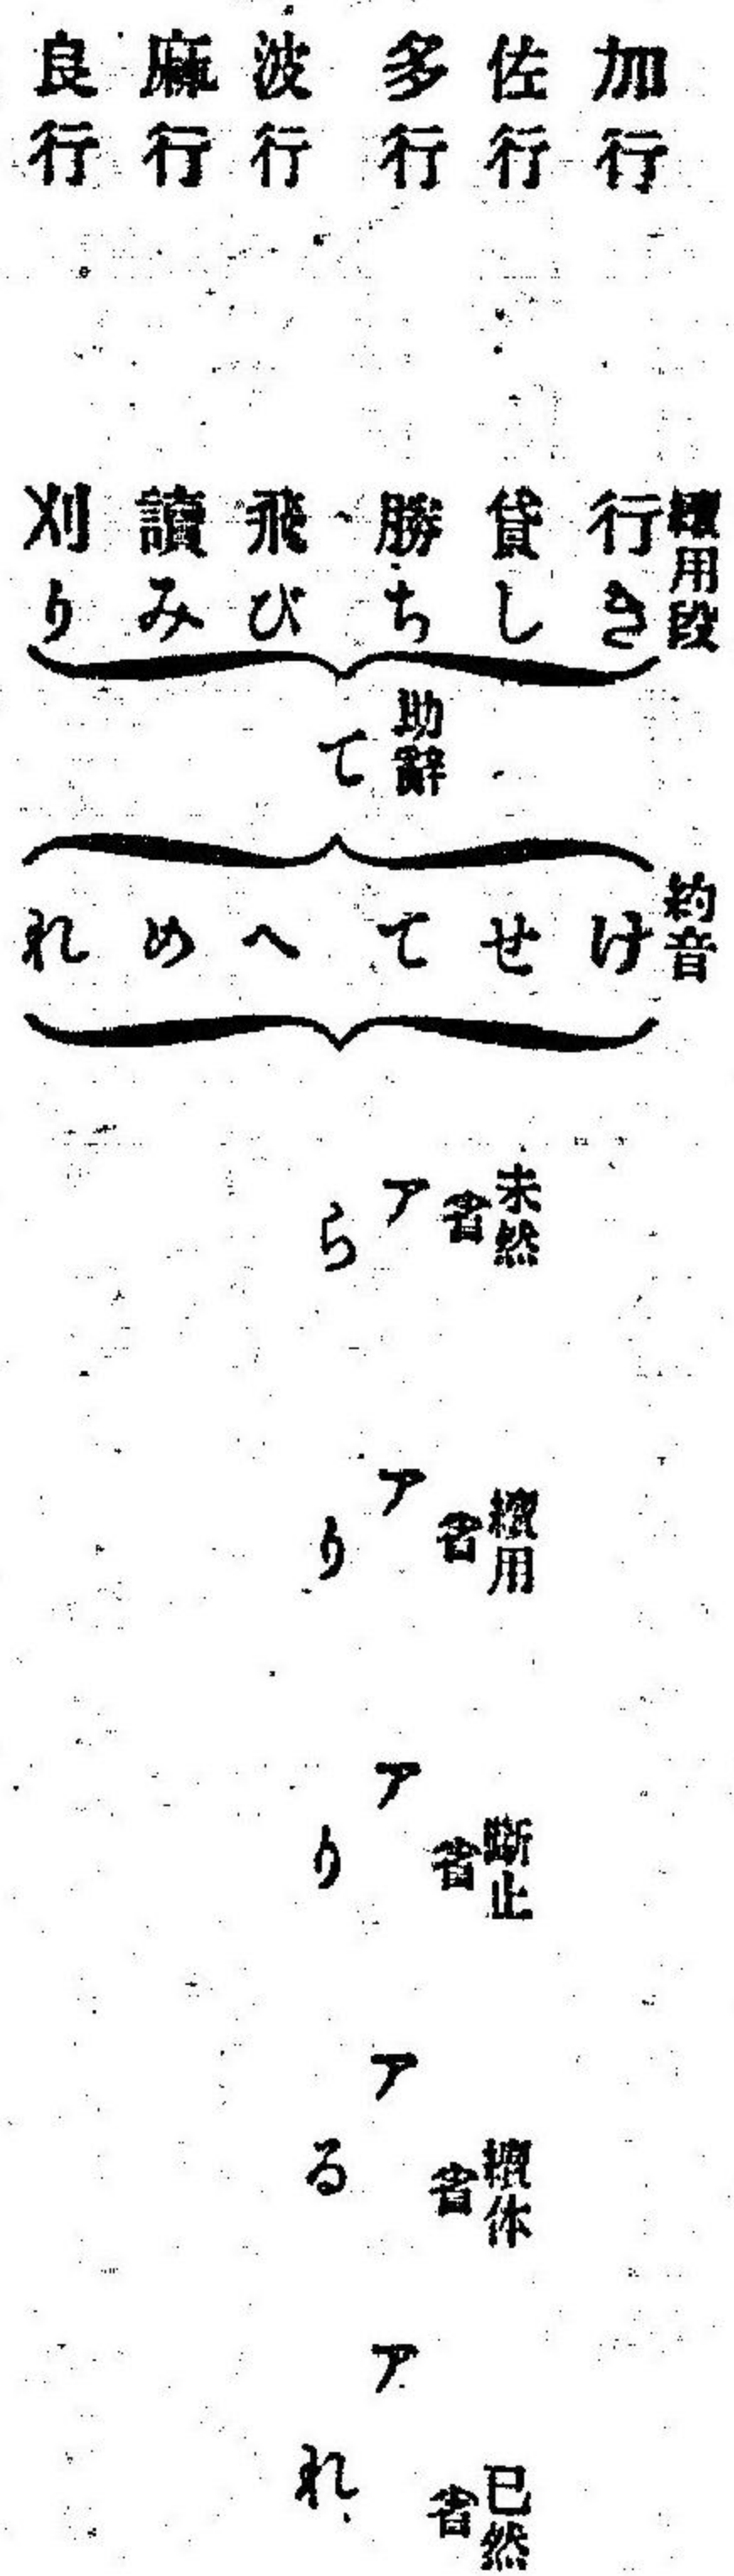 加行
佐行
多行
波行
麻行
良行
續用段
行き
貸し
勝ち
飛び
讀み
刈り
助辭
て
約音
け
せ
て
へ
め
れ
未然
省
ア
ら
續用
省
ア
り
斷止
省
ア
り
續体
省
ア
る
已然
省
ア
れ